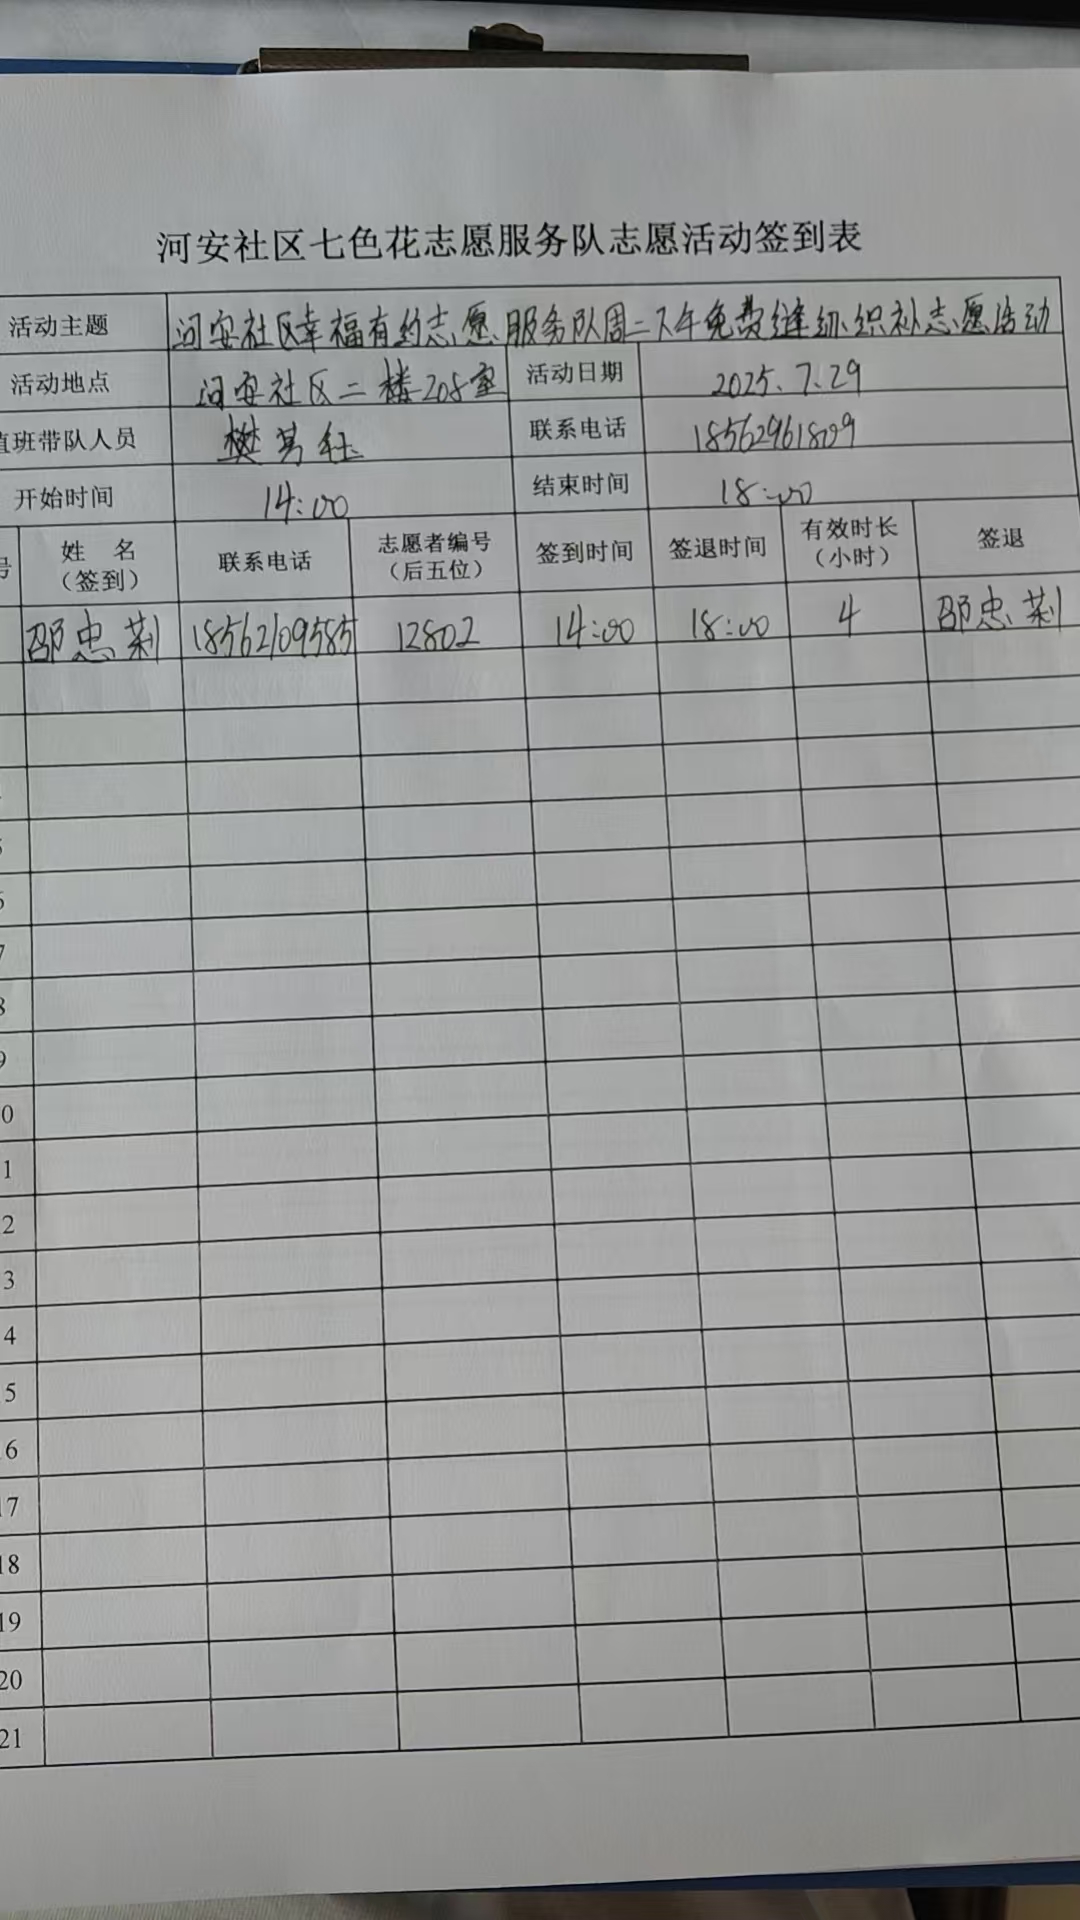 河安社区七色花志愿服务队志愿活动签到表
活动主题 河安社区幸福有约志愿服务队周二下午免费缝纫织补志愿活动
活动地点 河安社区二楼208室 活动日期 2025.7.29
值班带队人员 樊 钰 联系电话 18562961809
开始时间 14:00 结束时间 18:00
号 姓 名 联系电话 志愿者编号 签到时间 签退时间 有效时长 签退
(签到) (后五位) (小时)
邵忠 18562109585 12802 14:00 18:00 4 邵忠
5
6
7
8
9
0
1
2
3
4
5
6
17
18
19
20
21